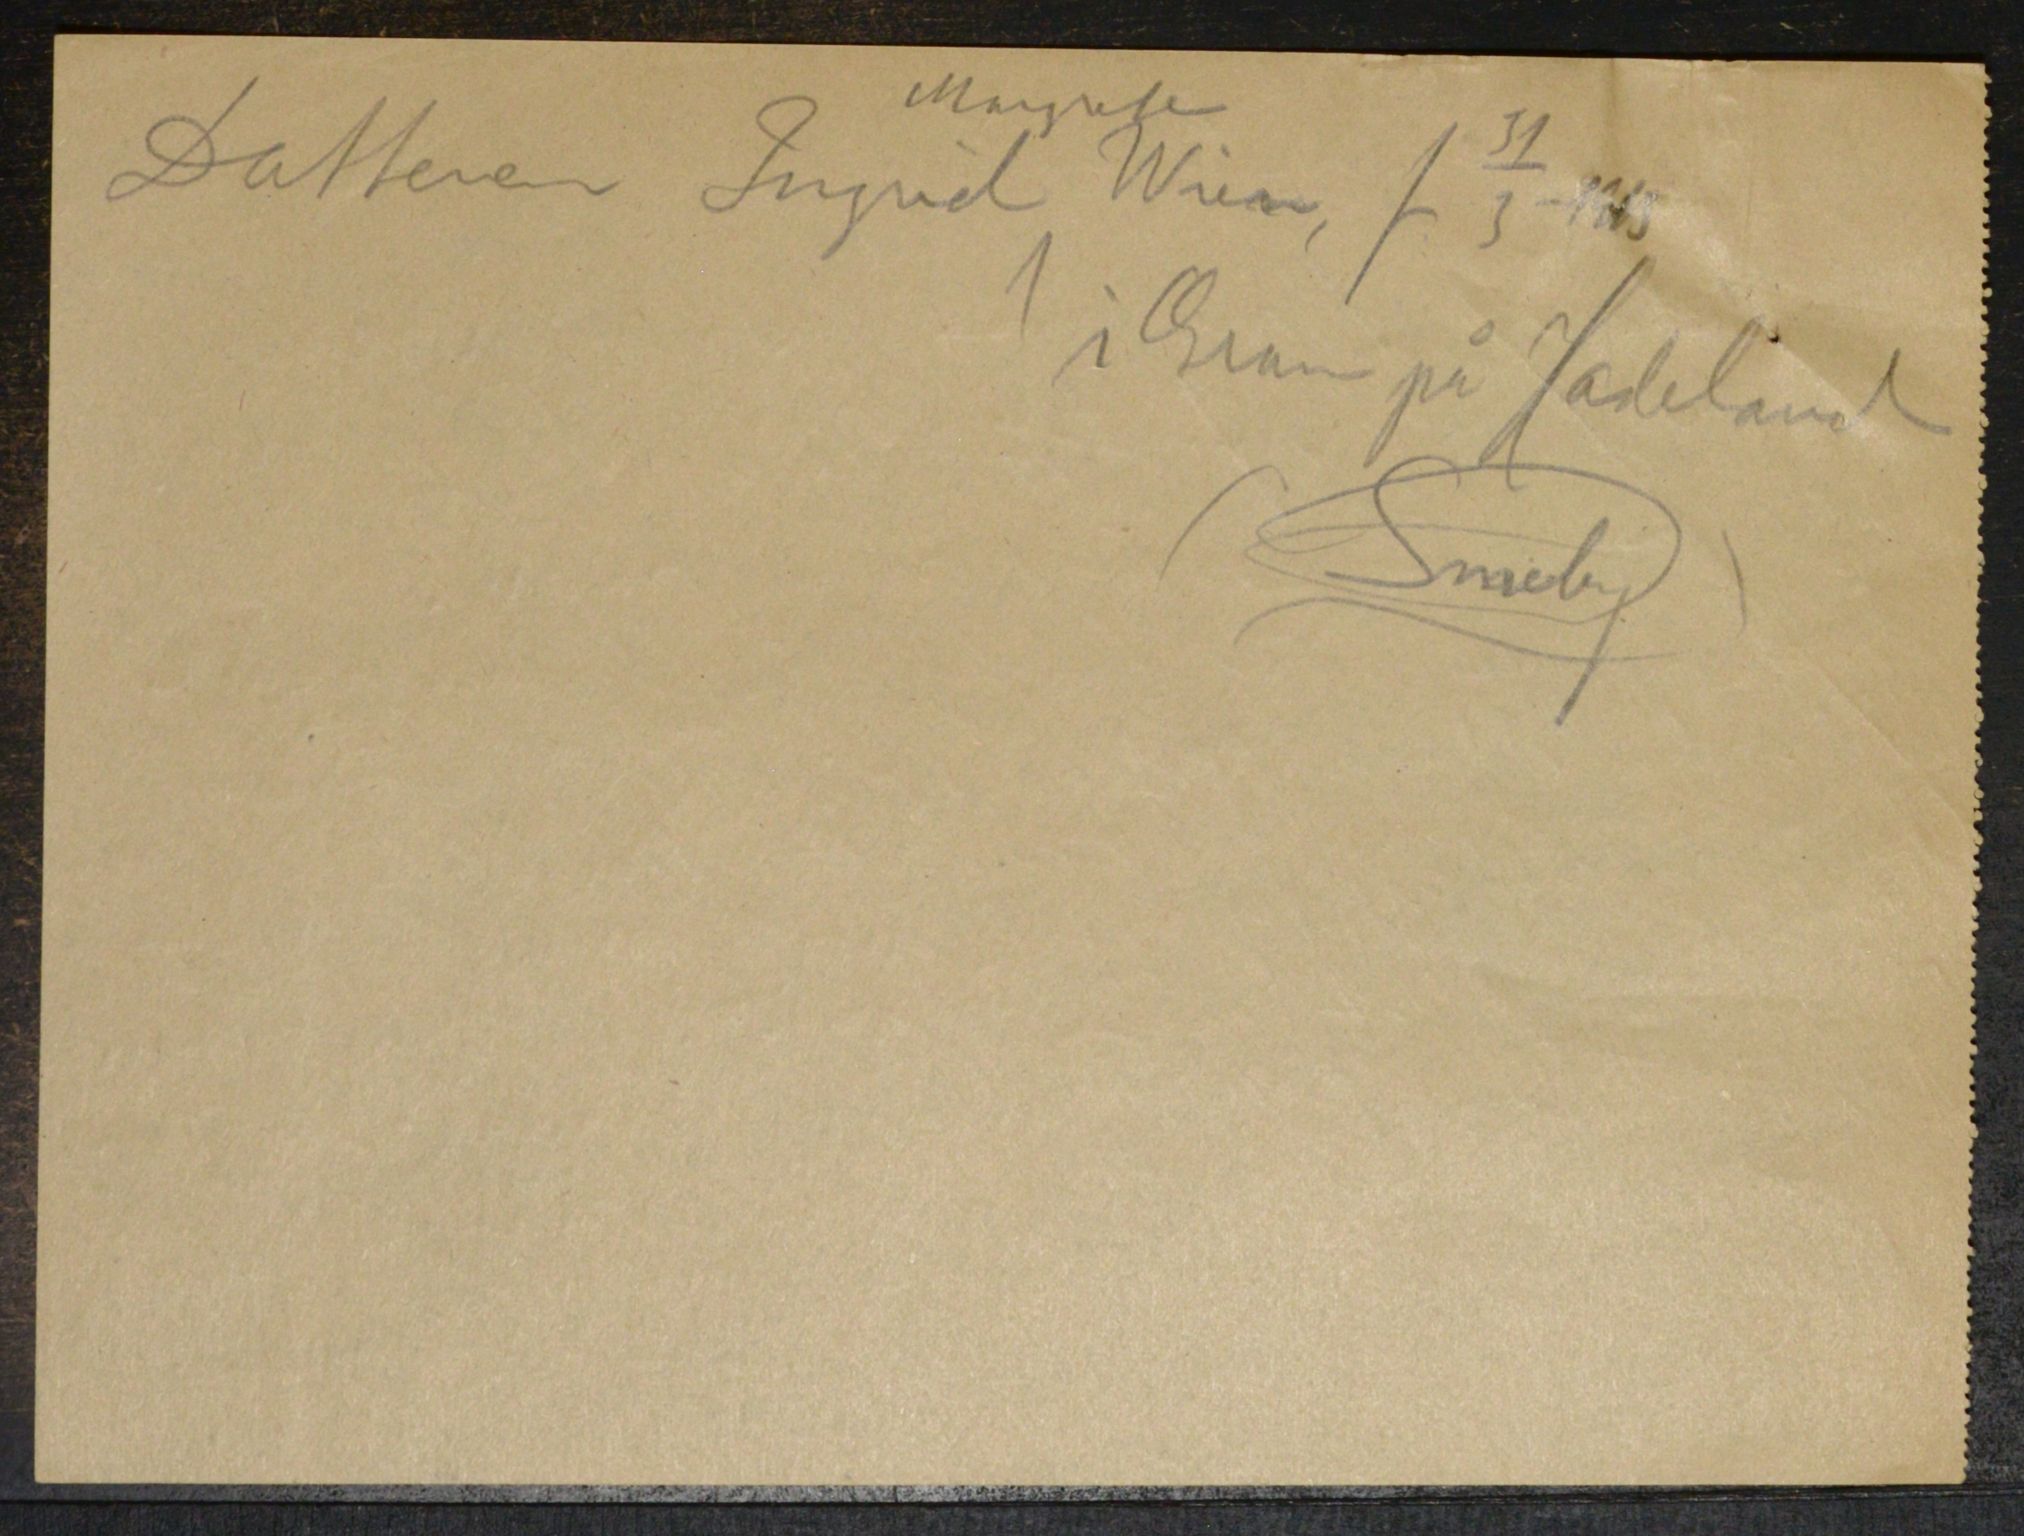 Margrete
Datteren Ingrid Wien, f 31/3-
i Gran på Hadeland
(Smeby)